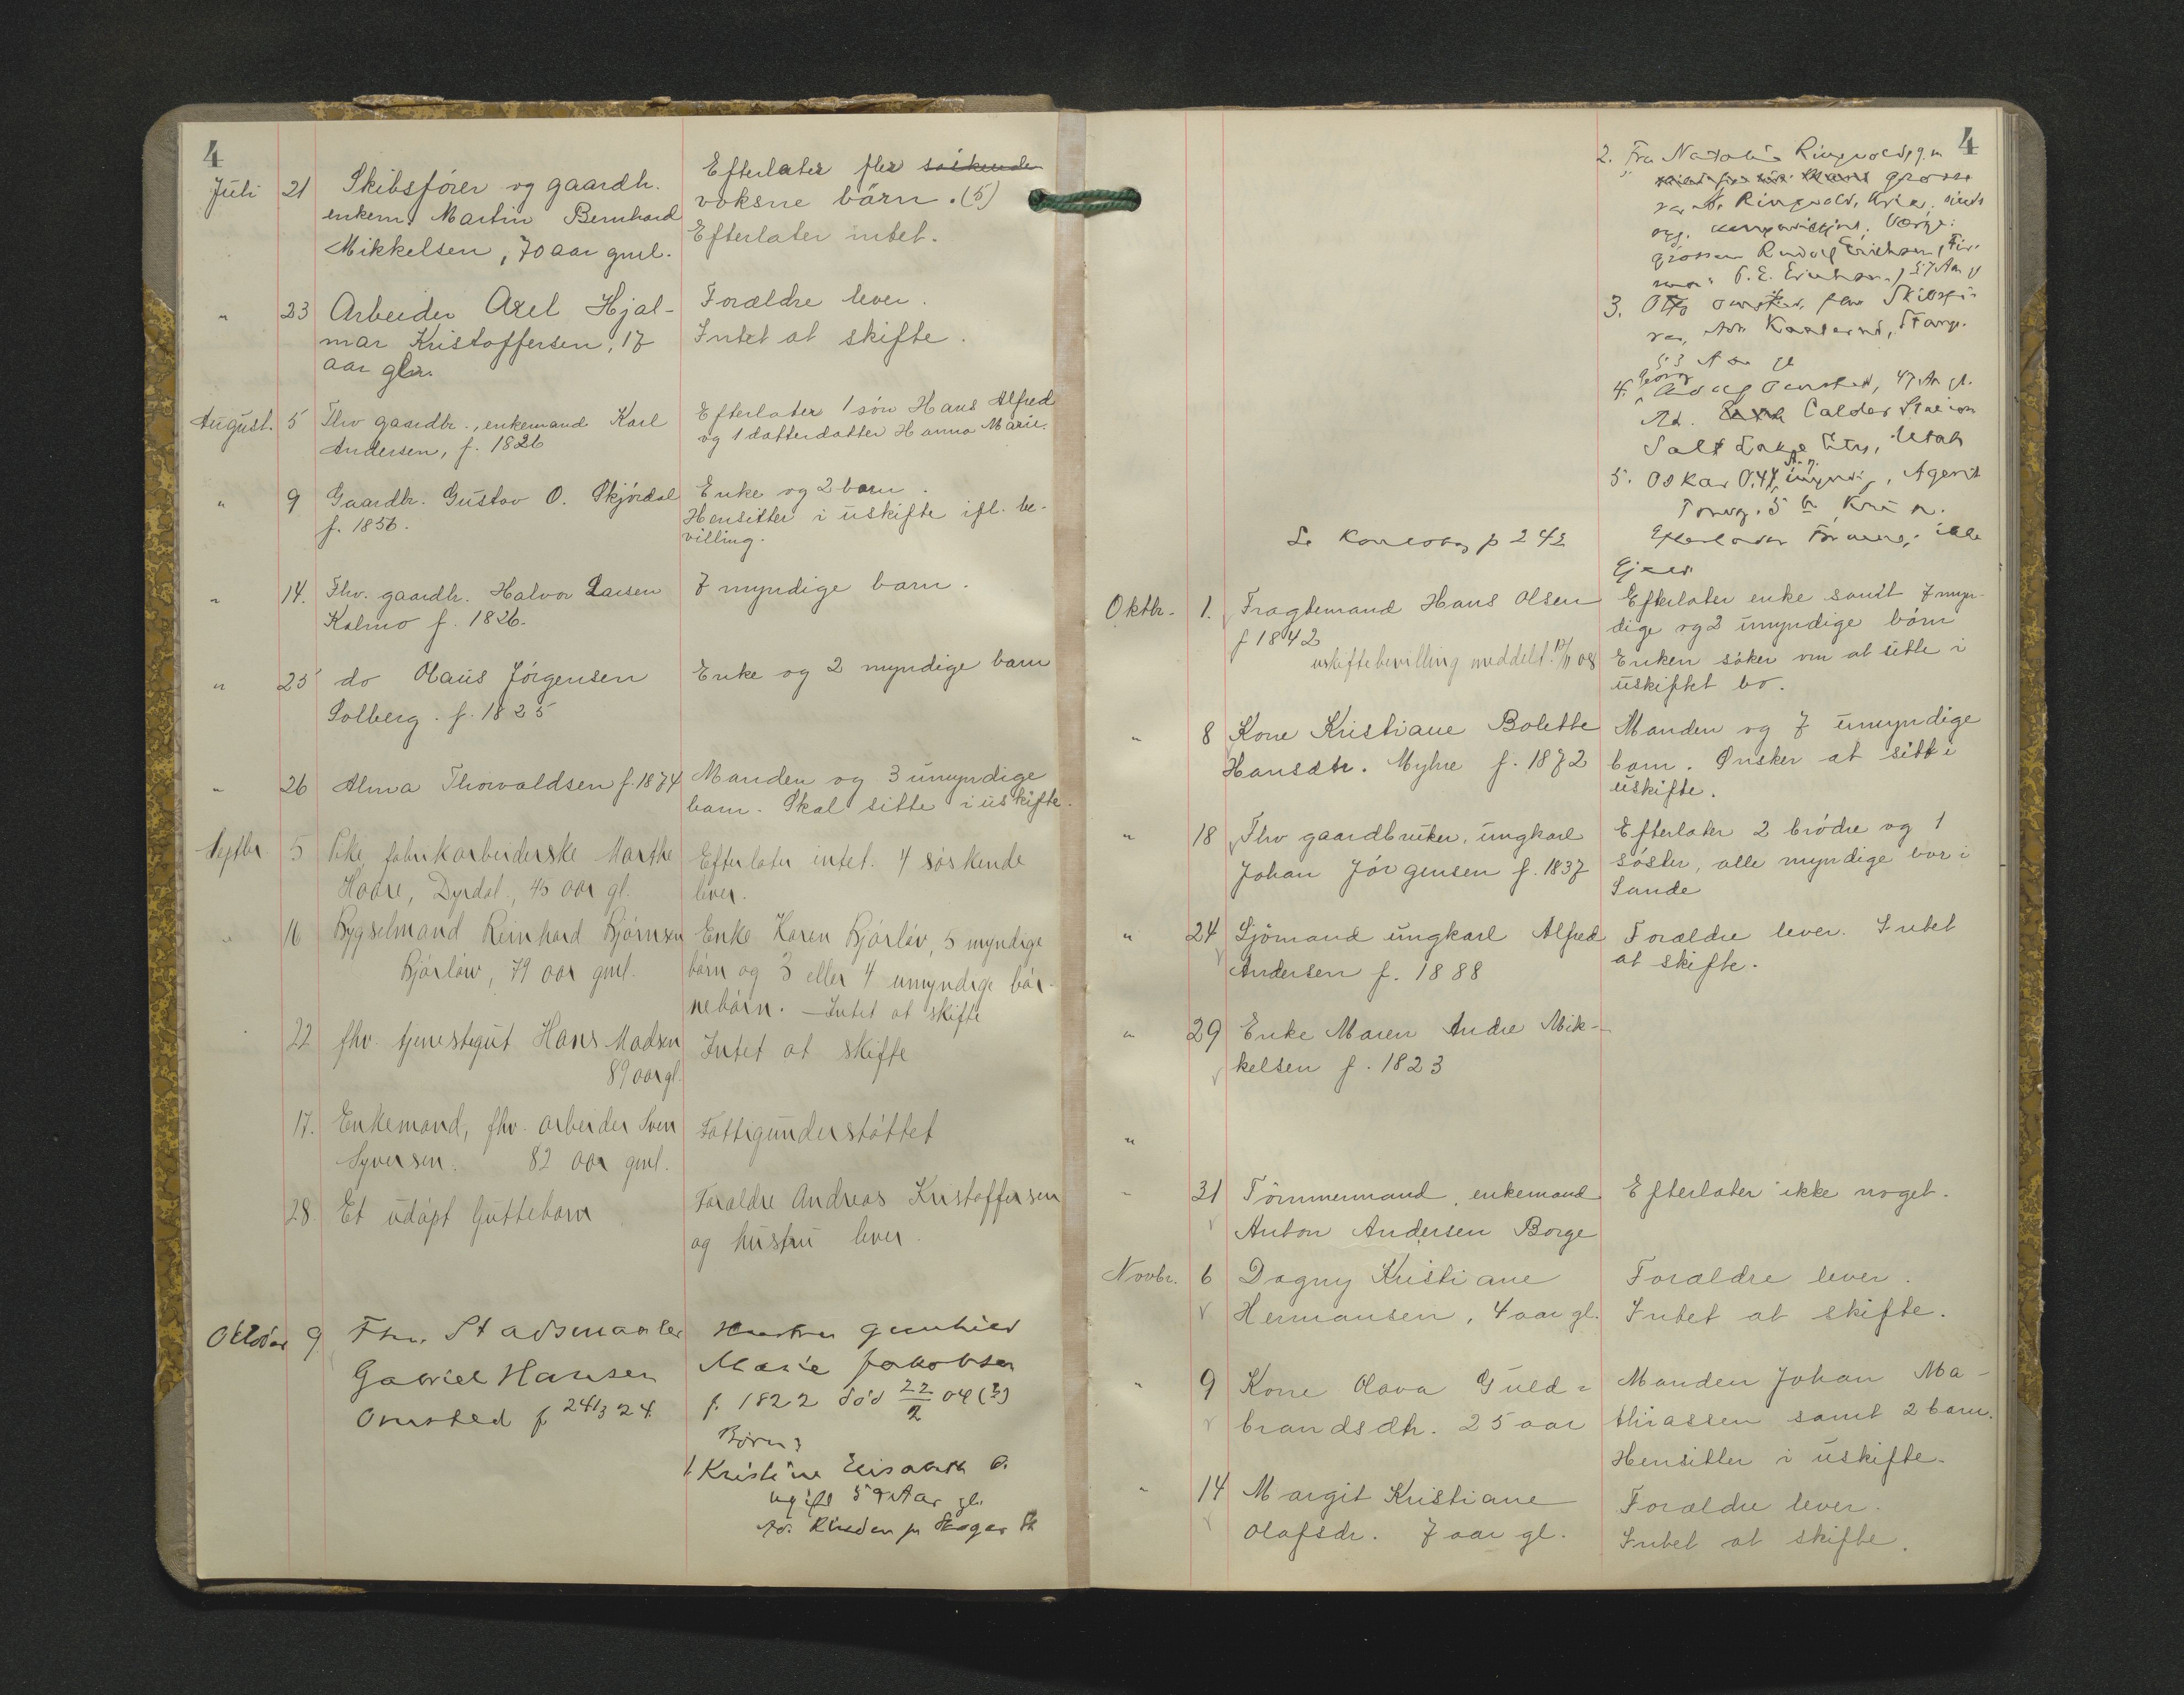 4
Juli 21 Skibsfører og gaardbr. Efterlater fler söskende
enkem. Martin Bernhard voksne börn. (5)
Mikkelsen, 70 aar gml. Efterlater intet.
" 23 Arbeider Axel Hjal- Forældre lever.
mar Kristoffersen, 17 Intet at skifte.
aar gl.
August. 5 Fhv gaardbr., enkemand Karl Efterlater 1 sön Hans Alfred
Andersen, f. 1826 og 1 datterdatter Hanna Marie.
" 9 Gaardbr. Gustav O. Skjördal Enke og 2 barn.
f. 1856. Hensitter i uskifte ifl. be-
villing.
" 14. Fhv. gaardbr. Halvor Larsen 7 myndige barn.
Kolmo f. 1826.
" 25 do Olaus Jörgensen Enke og 2 myndige barn
Solberg. f. 1825
" 26 Alma Thorvaldsen f. 1874 Manden og 3 umyndige
barn. Skal sitte i uskifte.
Septbr. 5 Pike fabrikarbeiderske Marthe Efterlater intet. 4 söskende
Haare, Dyrdal., 45 aar gl. lever.
" 16 Bygselmand Reinhard Bjørnsen Enke Karen Bjørløv, 5 myndige
Bjørløv, 79 aar gml. børn og 3 eller 4 umyndige bør-
nebørn. — Intet at skifte
22 fhv. tjenestegut Hans Madsen Intet at skifte
89 aar gl.
17. Enkemand, fhv. arbeider Sven Fattigunderstøttet
Syversen. 82 aar gml.
28 Et udøpt Guttebarn Forældre Andreas Kristoffersen
og hustru lever.
Oktober 9 Fhv. Stadsmaaler Hustru Gunhild
Gabriel Hansen Marie Jakobsen
Omsted f 24/3 24. f. 1822 död 22/2 04 (?)
Børn:
1. Kristine Elisabeth O.
ugift 59 Aar gl.
4
2. Fru Natalie Ringvold, g. m.
grosse
Ringvold, Kria,
Værge:
grosserer Rudolf Erichsen, Fir-
57 Aar gl
3. Otto Omsted,
53 Aar gl
4. Georg Adolf Omsted, 47 Ar gl.
Ad. Calder Station
Salt Lake City, Utah
5. Oskar O. 44 A. g. , Agent
Torvg. 5 b, Kria.
Se p 242 Efterlader Formue; ikke
Ejend
Oktbr. 1. Fragtemand Hans Olsen Efterlater enke samt 7 myn-
f 1842 dige og 2 umyndige börn
uskiftebevilling meddelt 17/11 08 Enken söker om at sitte i
uskiftet bo.
" 8 Kone Kristiane Bolette Manden og 7 umyndige
Hansdtr. Myhre f. 1872 barn. Ønsker at sitte i
uskifte.
" 18 Fhv gaardbruker, ungkarl Efterlater 2 brödre og 1
Johan Jörgensen f. 1837 söster, alle myndige bor i
Sande
" 24 Sjömand ungkarl Alfred Forældre lever. Intet
Andersen f. 1888 at skifte.
" 29 Enke Maren Andre Mik-
kelsen f. 1823
"
" 31 Tömmermand, enkemand Efterlater ikke noget.
Anton Andersen Borge
Novbr. 6 Dagny Kristiane Forældre lever.
Hermansen, 4 aar gl. Intet at skifte.
" 9 Kone Olava Guld= Manden Johan Ma-
brandsdtr. 25 aar thiassen samt 2 barn.
Hensitter i uskifte.
" 14 Margit Kristiane Forældre lever.
Olafsdr. 7 aar gl. Intet at skifte.